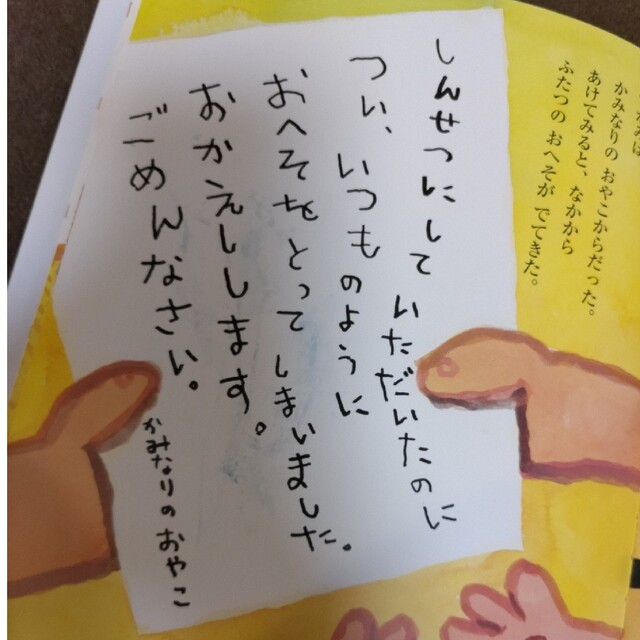 かみなりの おやこからだった。
あけてみると、なかから
ふたつの おへそが でてきた。
しんせつにして いただいたのに
つい、いつものように
おへそをとってしまいました。
おかえしします。
ごめんなさい。
かみなりの おやこ